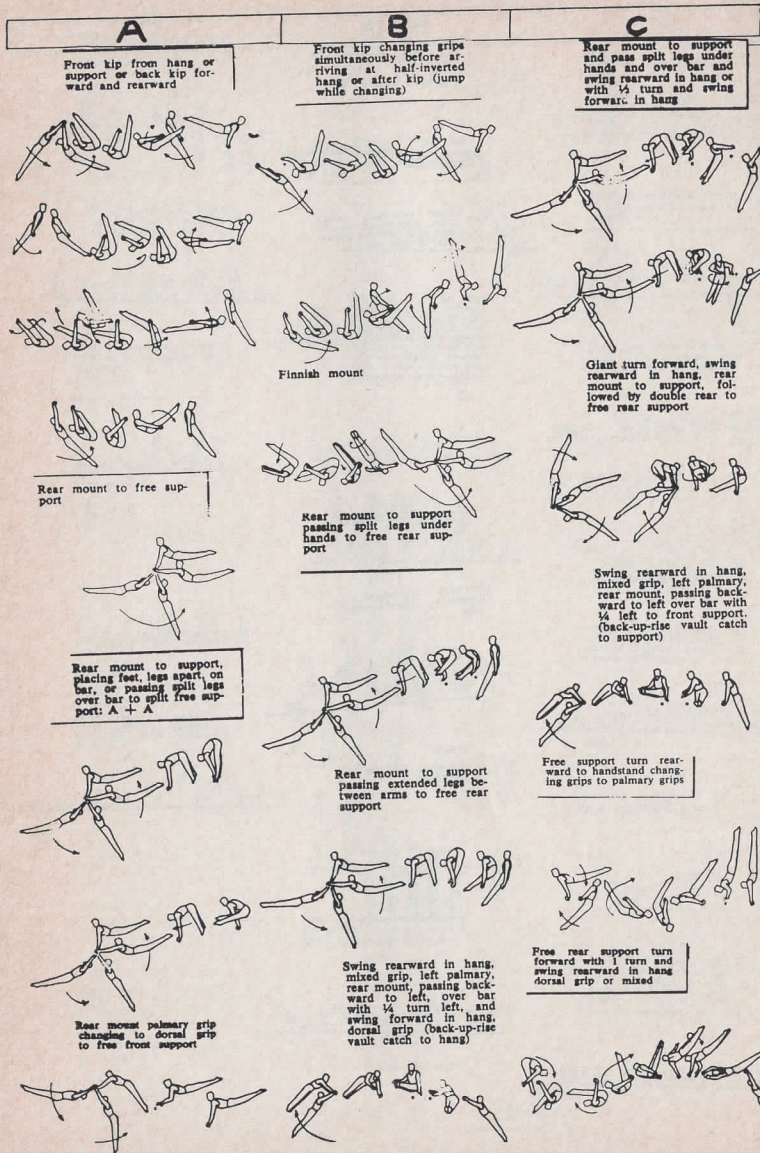 A
B
C
Front kip from hang or
support or back kip for-
ward and rearward
Rear mount to free sup-
port
Rear mount to support,
placing feet, legs apart, on
bar, or passing split legs
over bar to split free sup-
port: A + A
Rear mount palmary grip
changing to dorsal grip
to free front support
Front kip changing grips
simultaneously before ar-
riving at half-inverted
hang or after kip (jump
while changing)
Finnish mount
Rear mount to support
passing split legs under
hands to free rear sup-
port
Rear mount to support
passing extended legs be-
tween arms to free rear
support
Swing rearward in hang,
mixed grip, left palmary,
rear mount, passing back-
ward to left, over bar
with ¼ turn left, and
swing forward in hang,
dorsal grip (back-up-rise
vault catch to hang)
Rear mount to support
and pass split legs under
hands and over bar and
swing rearward in hang or
with ½ turn and swing
forward in hang
Giant turn forward, swing
rearward in hang, rear
mount to support, fol-
lowed by double rear to
free rear support
Swing rearward in hang,
mixed grip, left palmary,
rear mount, passing back-
ward to left over bar with
¼ left to front support.
(back-up-rise vault catch
to support)
Free support turn rear-
ward to handstand chang-
ing grips to palmary grips
Free rear support turn
forward with 1 turn and
swing rearward in hang
dorsal grip or mixed